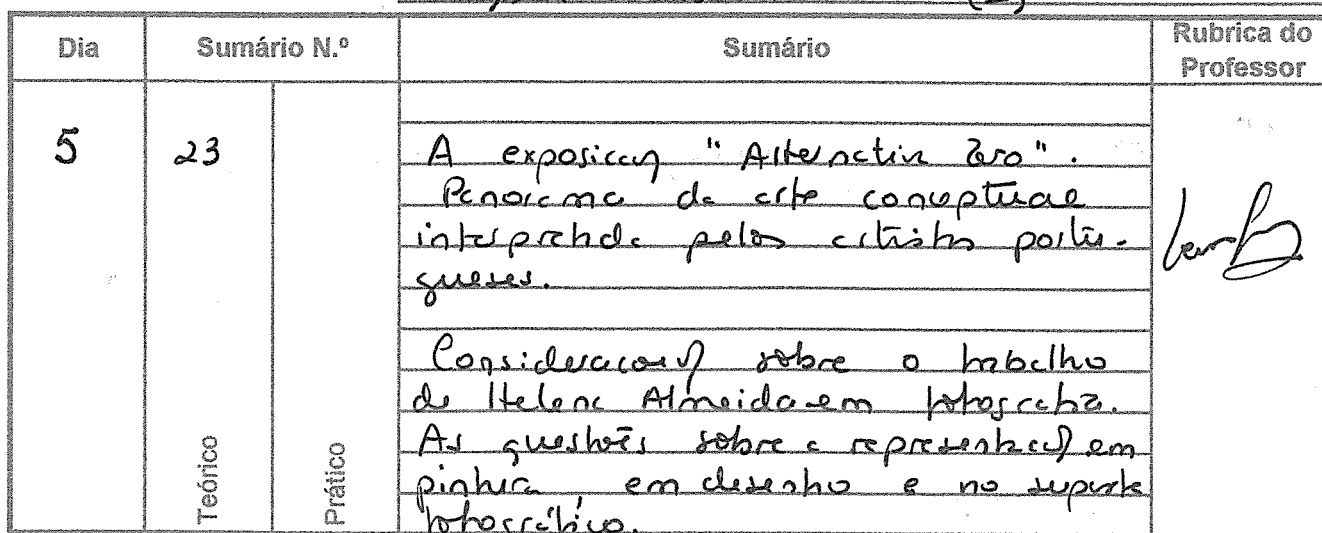 (2)
Dia Sumário N.º Sumário Rubrica do Professor
5 23 A exposição "Alternativa Zero".
Panorama da arte conceptual
interpretada pelos artistas portu-
gueses.
Considerações sobre o trabalho
de Helena Almeida em fotografia.
As questões sobre a representação em
pintura, em desenho e no suporte
fotográfico.
Teórico
Prático